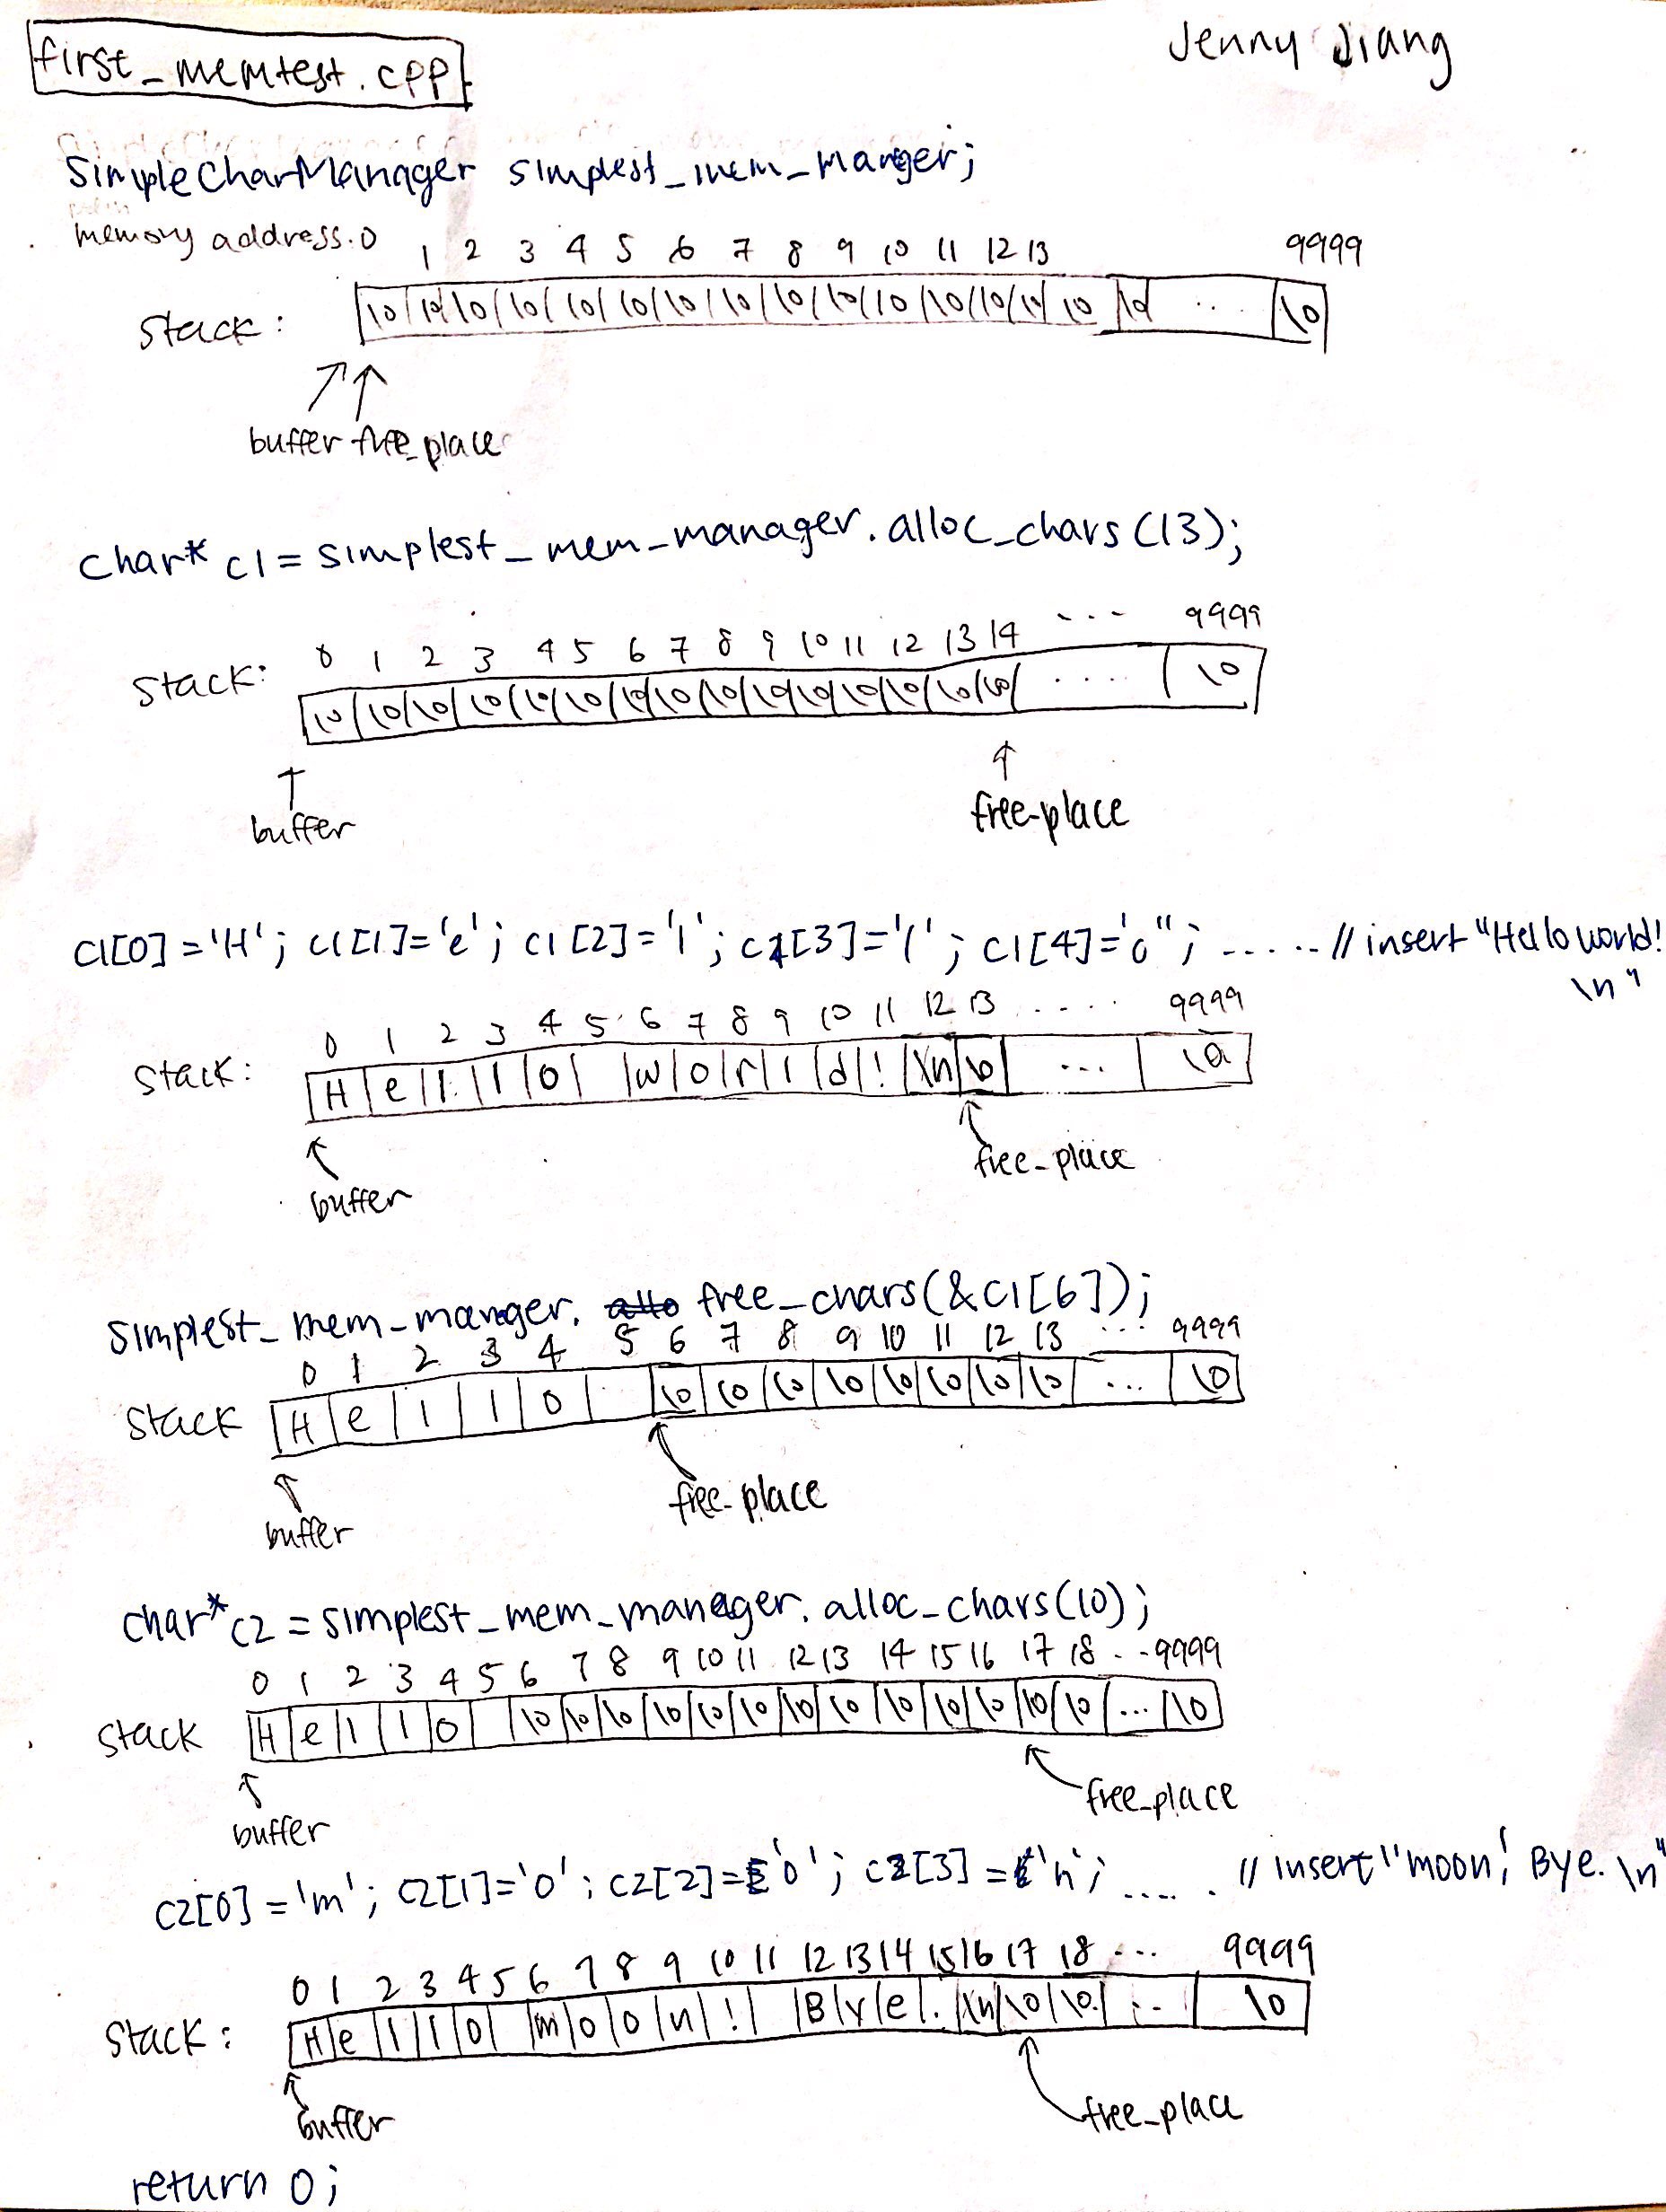 first_memtest.cpp
Jenny Jiang
SimpleCharManager simplest_mem_manger;
memory address: 0 1 2 3 4 5 6 7 8 9 10 11 12 13 9999
stack: \0 \0 \0 \0 \0 \0 \0 \0 \0 \0 \0 \0 \0 \0 \0 \0 ... \0
buffer free_place
char* c1 = simplest_mem_manager.alloc_chars(13);
0 1 2 3 4 5 6 7 8 9 10 11 12 13 14 ... 9999
stack: \0 \0 \0 \0 \0 \0 \0 \0 \0 \0 \0 \0 \0 \0 \0 .... \0
buffer free-place
c1[0]='H'; c1[1]='e'; c1[2]='l'; c1[3]='l'; c1[4]='o"; ..... // insert "Hello world!
\n"
0 1 2 3 4 5 6 7 8 9 10 11 12 13 .... 9999
stack: H e l l o w o r l d ! \n \0 ... \0
buffer free-place
simplest_mem_manger. free_chars(&c1[6]);
0 1 2 3 4 5 6 7 8 9 10 11 12 13 ... 9999
stack H e l l o \0 \0 \0 \0 \0 \0 \0 \0 ... \0
buffer free-place
char* c2 = simplest_mem_manager.alloc_chars(10);
0 1 2 3 4 5 6 7 8 9 10 11 12 13 14 15 16 17 18 ..9999
stack H e l l o \0 \0 \0 \0 \0 \0 \0 \0 \0 \0 \0 \0 \0 ... \0
buffer free_place
c2[0]='m'; c2[1]='o'; c2[2]='o'; c2[3]='n'; ..... // insert "moon! Bye.\n"
0 1 2 3 4 5 6 7 8 9 10 11 12 13 14 15 16 17 18 ... 9999
stack: H e l l o m o o n ! B y e . \n \0 \0 ... \0
buffer free_place
return 0;